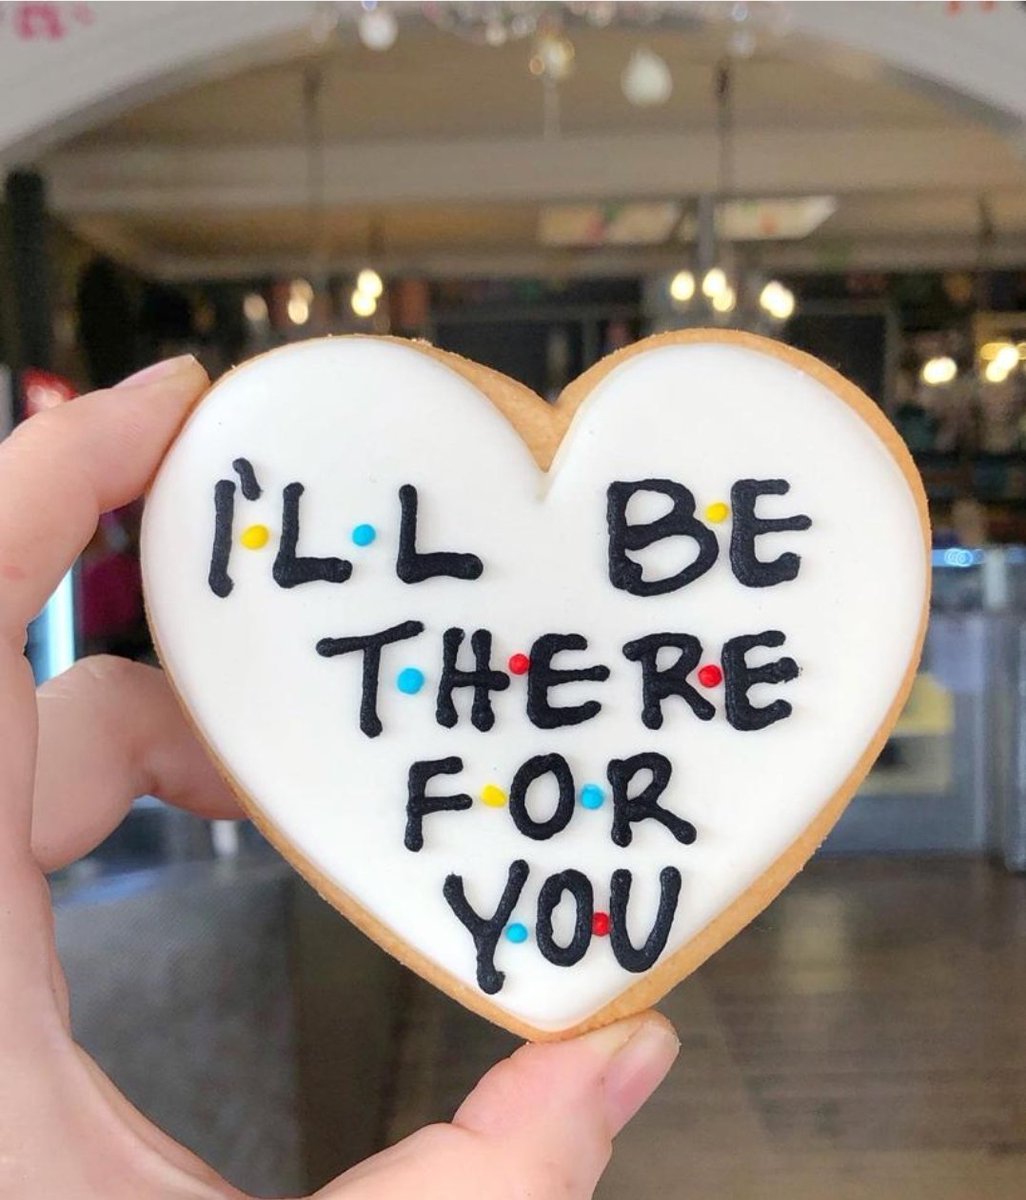 I'LL BE
THERE
FOR
YOU